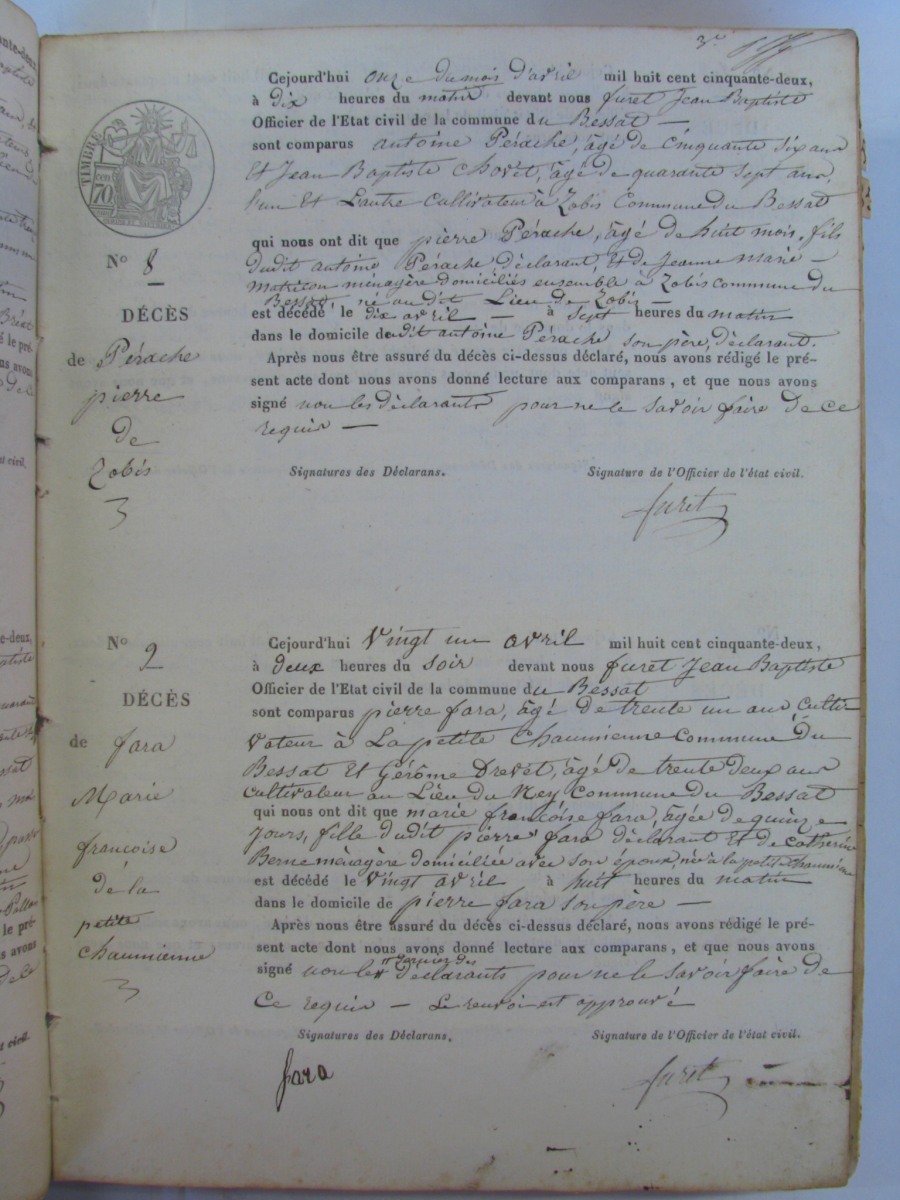 3e
TIMBRE
cen
70
Cejourd'hui onze du mois d'avril mil huit cent cinquante-deux,
à dix heures du matin devant nous furet Jean Baptiste
Officier de l'Etat civil de la commune du Bessat —
sont comparus antoine Pérache, âgé de cinquante six ans
Et Jean Baptiste chovet, âgé de quarante sept ans,
l'un Et L'autre cultivateur à Zobis Commune du Bessat
qui nous ont dit que pierre Pérache, âgé de huit mois, fils
dudit antoine Pérache déclarant, Et de Jeanne marie —
Matricon ménagère domiciliés ensemble à Zobis commune du
Bessat, né au dit Lieu de Zobis —
est décédé le dix avril — à sept heures du matin
dans le domicile dudit antoine Pérache son père, déclarant.
Après nous être assuré du décès ci-dessus déclaré, nous avons rédigé le pré-
sent acte dont nous avons donné lecture aux comparans, et que nous avons
signé non les déclarants pour ne le savoir faire de ce
requis —
Signatures des Déclarans. Signature de l'Officier de l'état civil.
furet
No 8
DÉCÈS
de Pérache
pierre
de
Zobis
No 9
DÉCÈS
de fara
Marie
francoise
de la
petite
chaumienne
Cejourd'hui Vingt un avril mil huit cent cinquante-deux,
à deux heures du soir devant nous furet Jean Baptiste
Officier de l'Etat civil de la commune du Bessat
sont comparus pierre fara, âgé de trente un ans, culti-
vateur à La petite Chaumienne commune du
Bessat Et Gérôme Drevet, âgé de trente deux ans
cultivateur au Lieu du Rey Commune du Bessat
qui nous ont dit que marie francoise fara, âgée de quinze
jours, fille dudit pierre fara déclarant Et de catherine
Berne ménagère domiciliée avec son époux, née à la petite chaumienne
est décédé le Vingt avril à huit heures du matin
dans le domicile de pierre fara son père —
Après nous être assuré du décès ci-dessus déclaré, nous avons rédigé le pré-
sent acte dont nous avons donné lecture aux comparans, et que nous avons
dernier des
signé non le déclarants pour ne le savoir faire de
Ce requis — Le renvoi est approuvé
Signatures des Déclarans. Signature de l'Officier de l'état civil.
fara furet